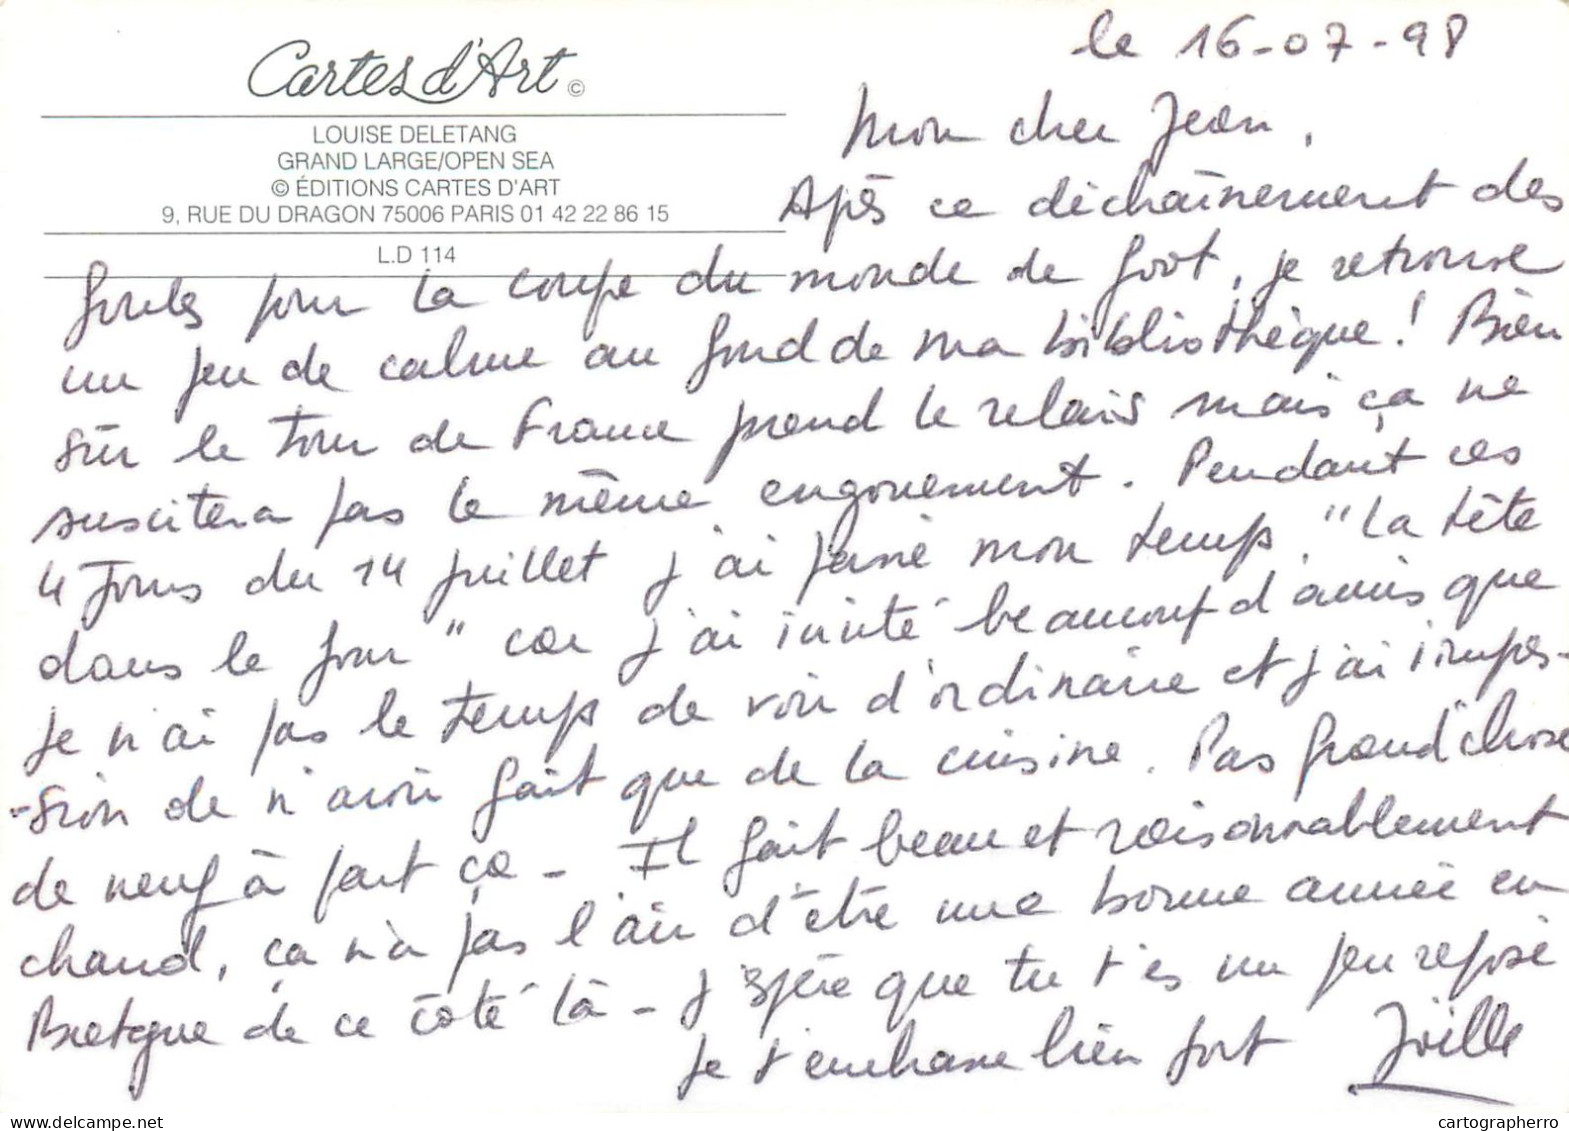 le 16-07-98
Cartes d'Art ©
LOUISE DELETANG
GRAND LARGE/OPEN SEA
© ÉDITIONS CARTES D'ART
9, RUE DU DRAGON 75006 PARIS 01 42 22 86 15
L.D 114
Mon cher Jean,
Après ce déchaînement des
foules pour la coupe du monde de foot, je retrouve
un peu de calme au fond de ma bibliothèque ! Bien
sûr le tour de France prend le relais mais ça ne
suscitera pas le même engouement. Pendant ces
4 jours du 14 juillet j'ai passé mon temps "la tête
dans le four" car j'ai invité beaucoup d'amis que
je n'ai pas le temps de voir d'ordinaire et j'ai impres-
-sion de n'avoir fait que de la cuisine. Pas grand'chose
de neuf à part ça - Il fait beau et raisonnablement
chaud, ça n'a pas l'air d'être une bonne année en
Bretagne de ce côté là - J'espère que tu t'es un peu reposé
Je t'embrasse bien fort Joëlle
cartographerro